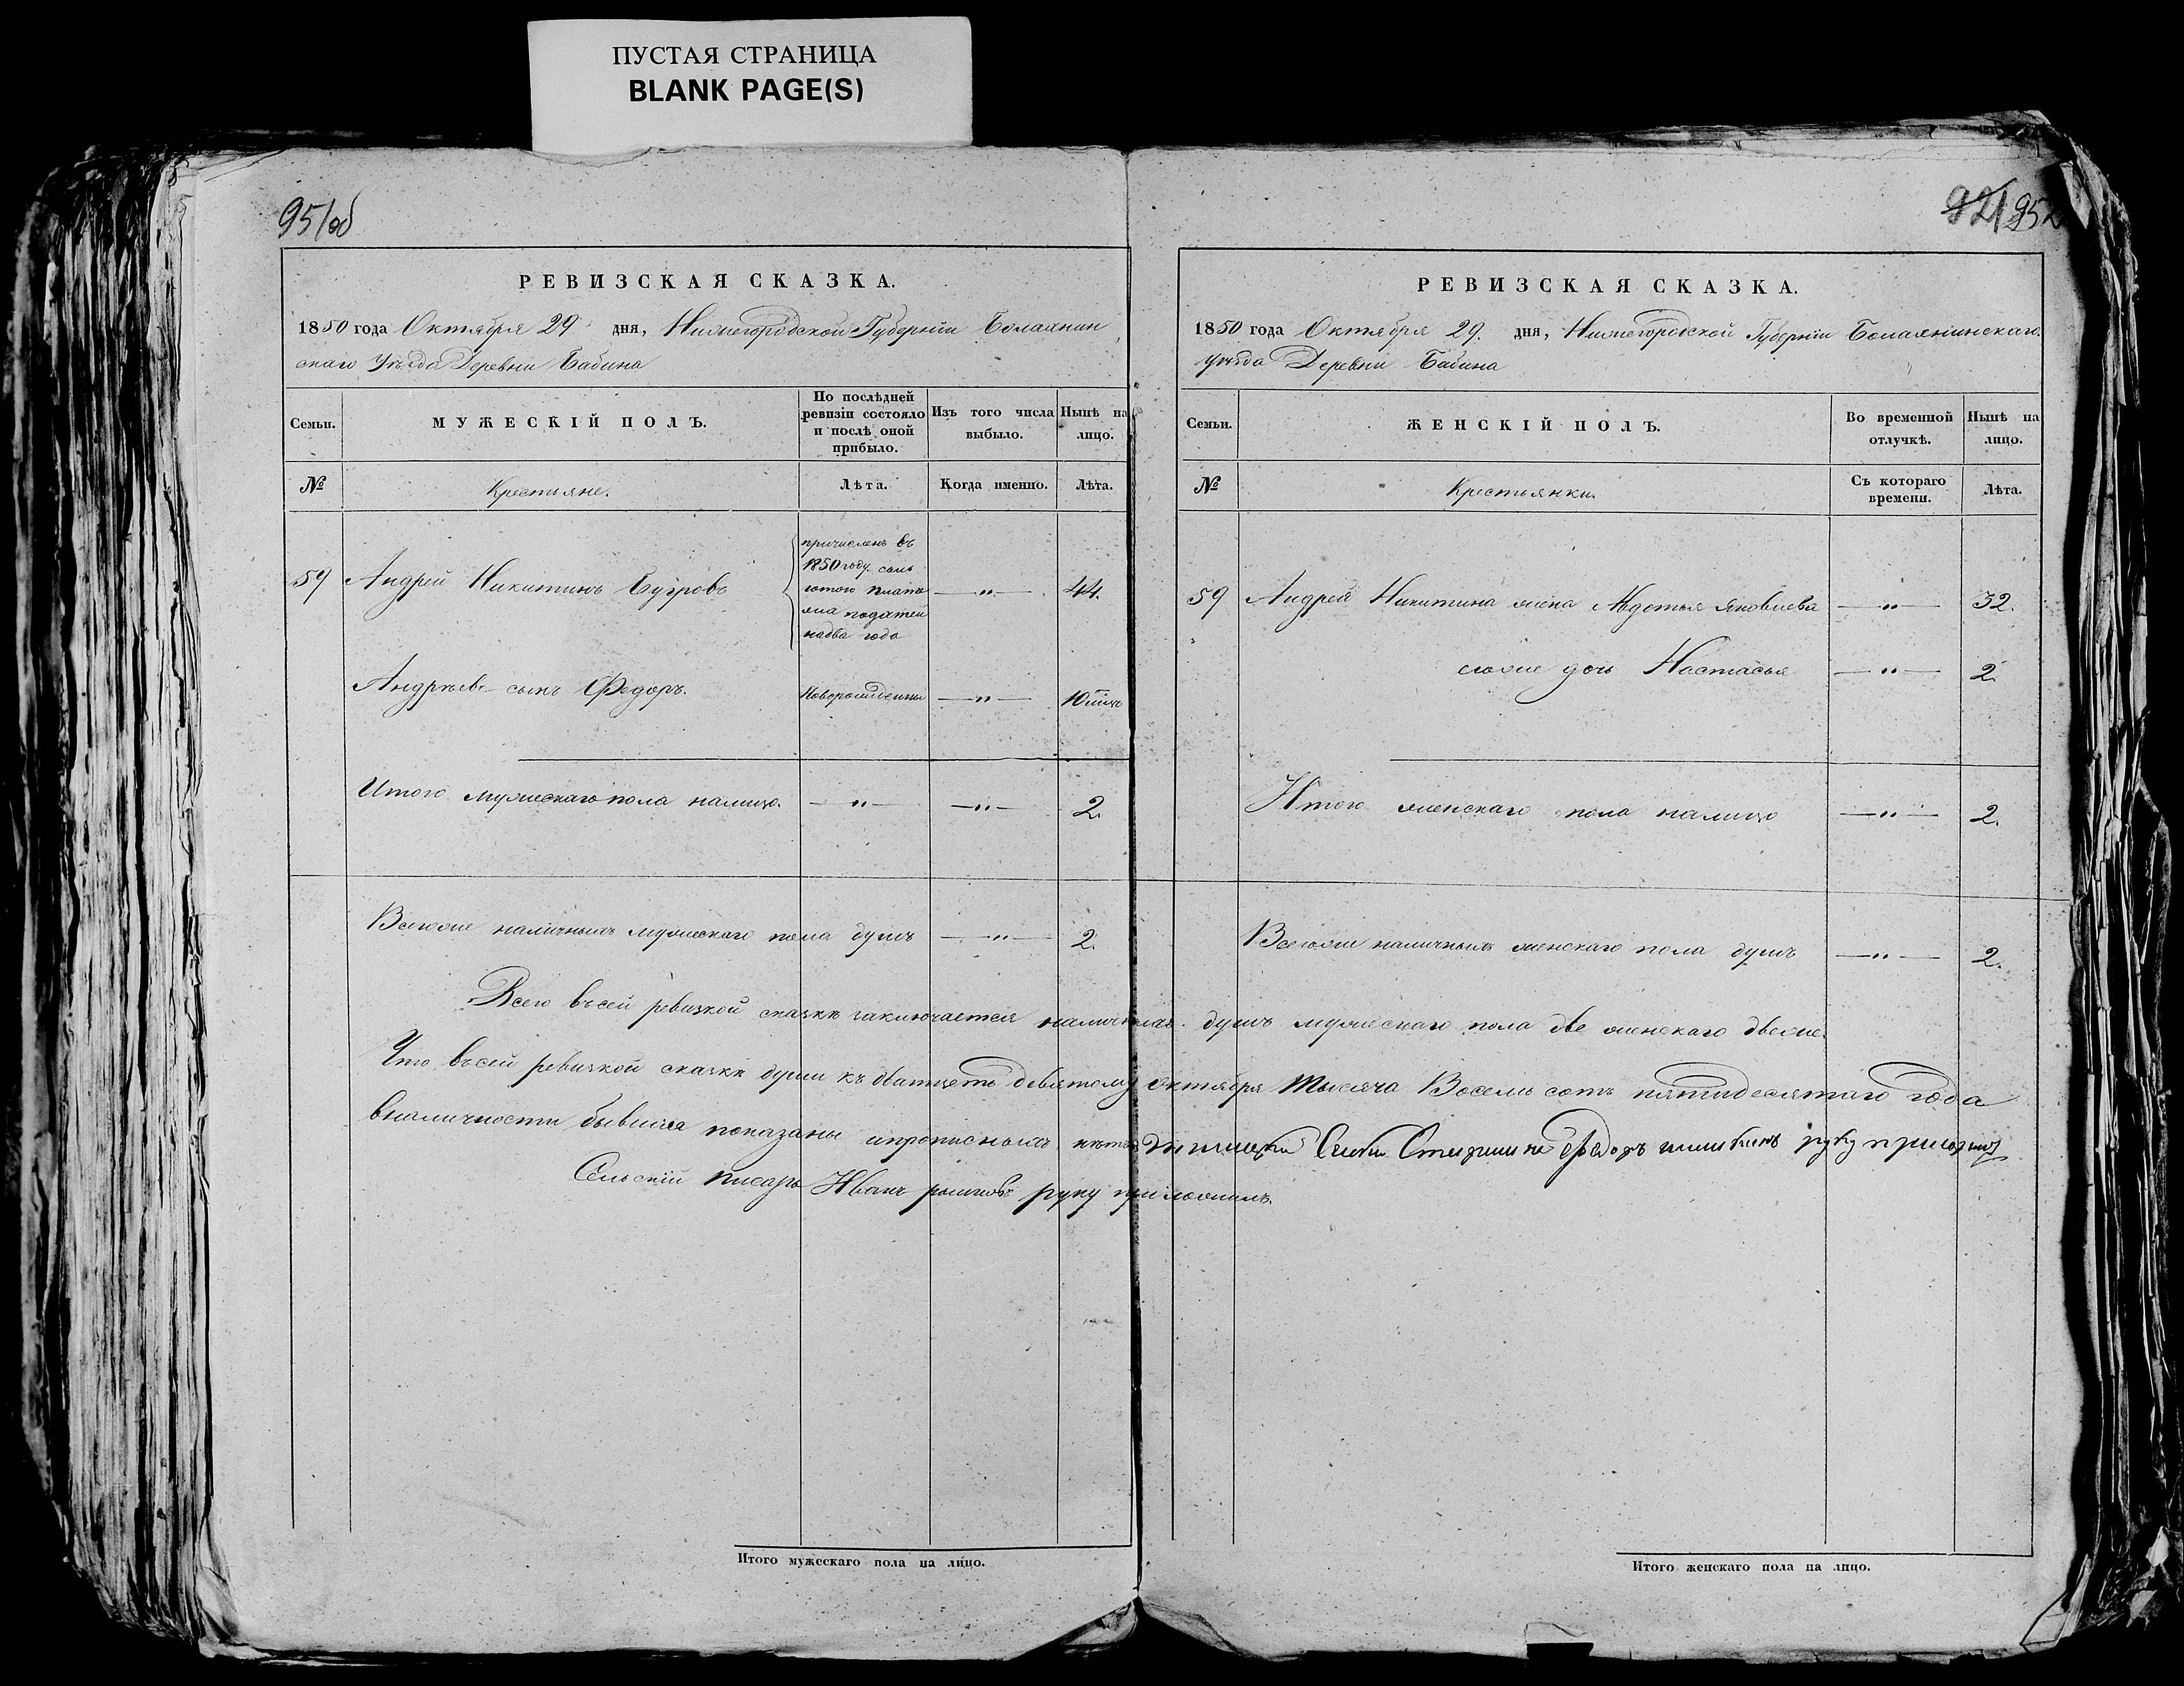 ПУСТАЯ СТРАНИЦА
BLANK PAGE(S)
951об
921 952
РЕВИЗСКАЯ СКАЗКА.
1850 года Октября 29 дня, Нижегородской Губерніи Болахнин
скаго Уѣзда Деревни Бабина
Семьи.
МУЖЕСКІЙ ПОЛЪ.
По послѣдней
ревизіи состояло
и послѣ оной
прибыло.
Изъ того числа
выбыло.
Нынѣ на
лицо.
№
Крестьяне.
Лѣта.
Когда именно.
Лѣта.
59 Андрей Никитинъ Бугровъ
причисленъ въ
1850 году
платe
жа податей
надва года
— „ — 44.
Андрѣевъ сынъ Федоръ. Новорожденны — „ — 10 мц
Итого мужескаго пола налицо. — „ — — „ — 2.
Всегоже наличныхъ мужескаго пола душъ — „ — 2.
РЕВИЗСКАЯ СКАЗКА.
1850 года Октября 29. дня, Нижегородской Губерніи Болахнинскаго
Уѣзда Деревни Бабина
Семьи.
ЖЕНСКІЙ ПОЛЪ.
Во временной
отлучкѣ.
Нынѣ на
лицо.
№
Крестьянки.
Съ котораго
времени.
Лѣта.
59 Андрея Никитина жена Авдотья Яковлева — „ — 32.
егоже дочь Настасья — „ — 2.
Итого женскаго пола налицо — „ — 2.
Всегоже наличныхъ женскаго пола душъ — „ — 2.
Всего въсей ревизкой сказкѣ заключается наличныхъ душъ мужескаго пола две женскаго двеже.
Что въсей ревизкой сказкѣ души къ дватцеть девятому октября тысяча Восемь сотъ пятидесятаго года
вналичности бывшіе показаны ипрописныхъ нѣтъ Старшина Федоръ руку приложилъ
Сельскій писарь Иванъ руку приложилъ.
Итого мужескаго пола на лицо.
Итого женскаго пола на лицо.